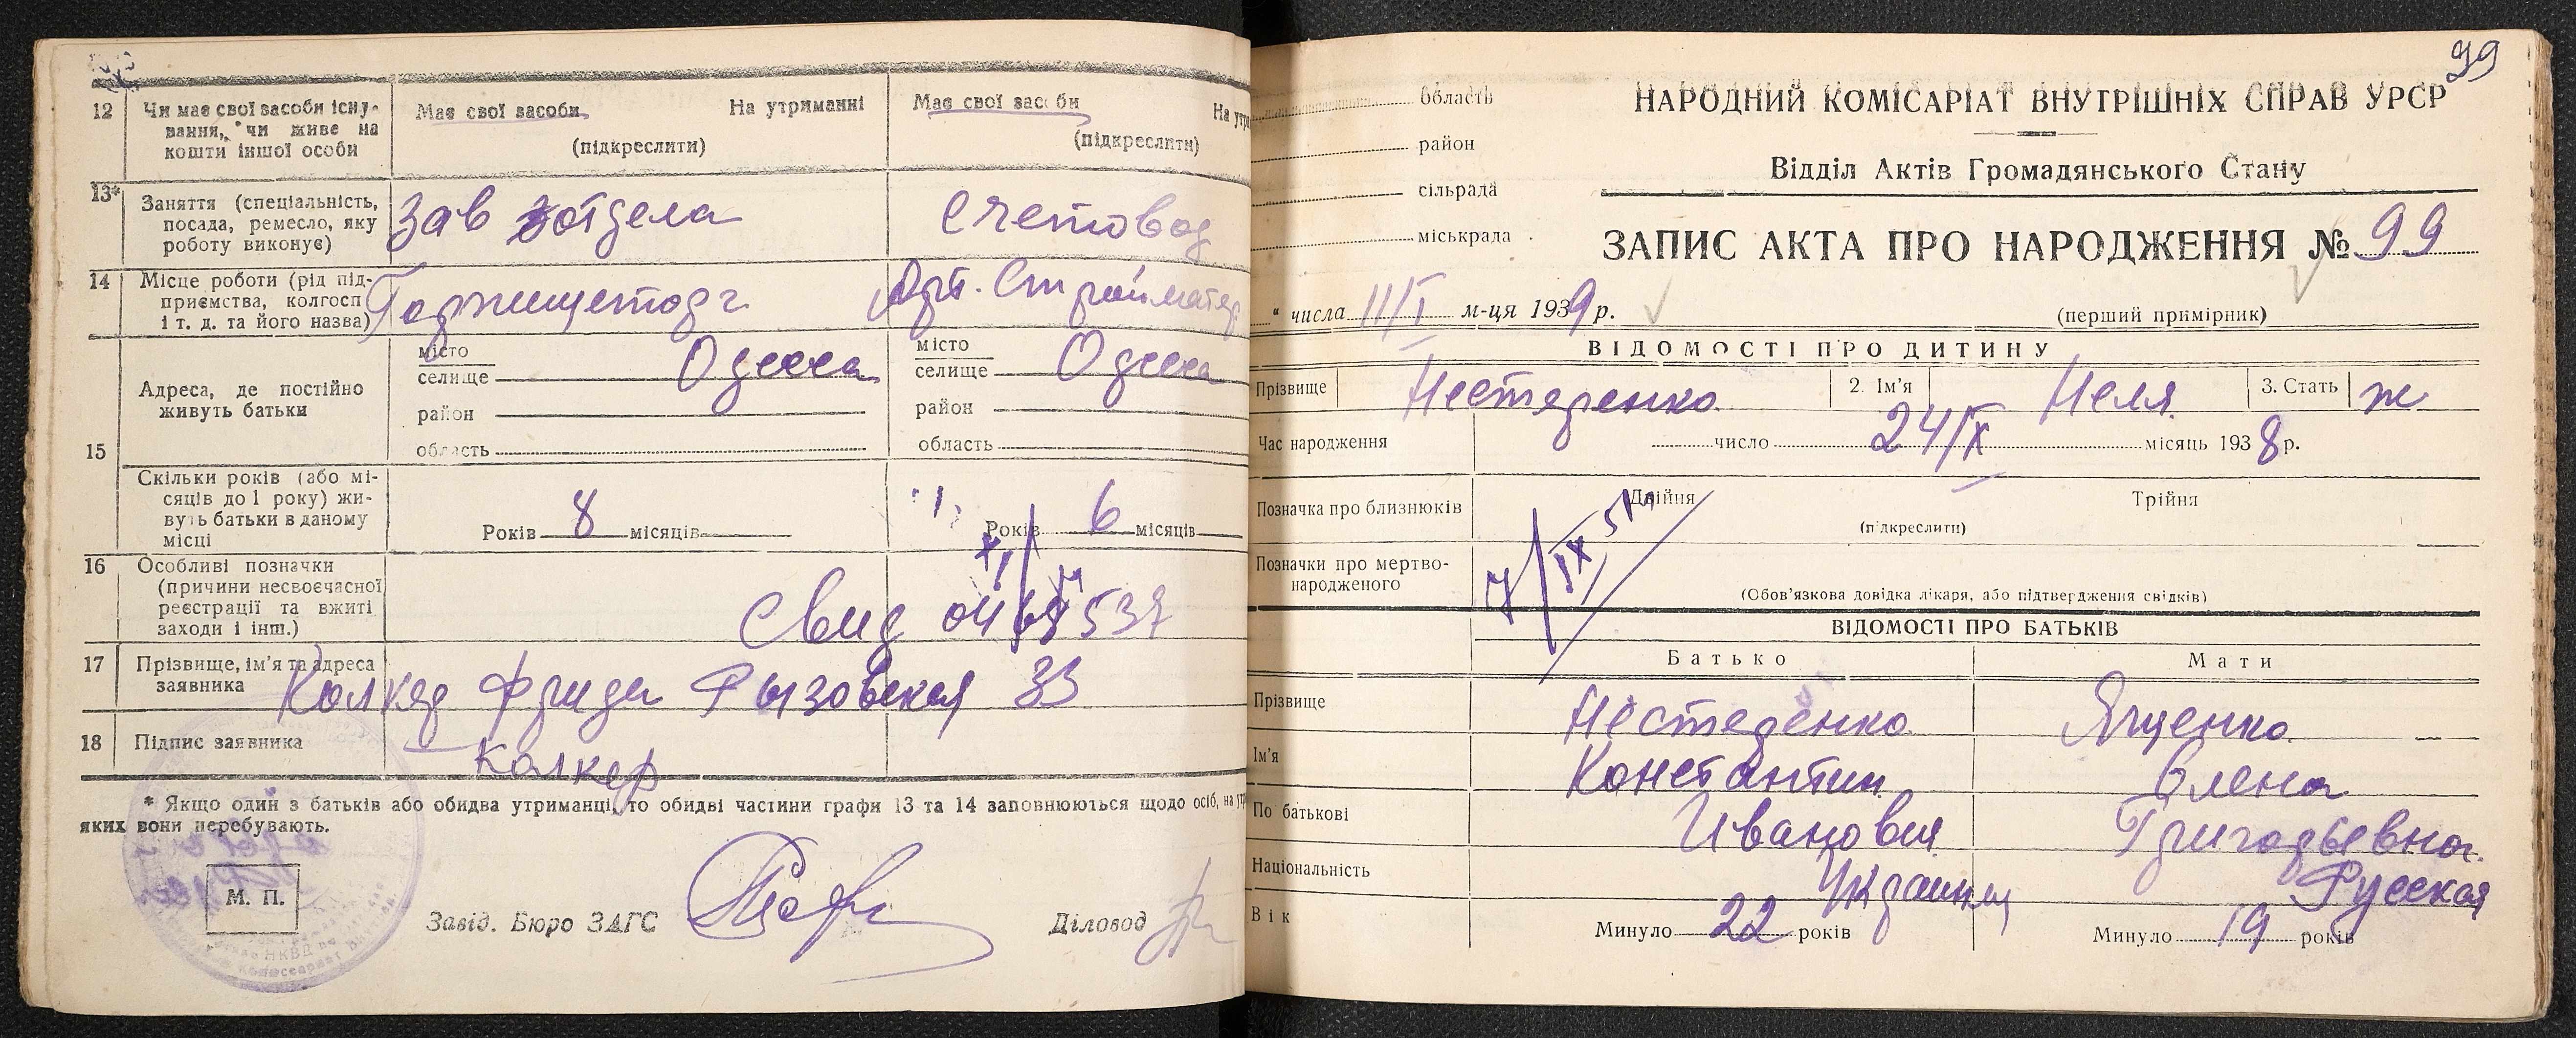 12
Чи має свої засоби існу-
вання, чи живе на
кошти іншої особи
Має свої засоби
На утриманні
(підкреслити)
Має свої засоби
На утри
(підкреслити)
13*
Заняття (спеціальність,
посада, ремесло, яку
роботу виконує)
Зав отдела
Счетовод
14
Місце роботи (рід під-
приємства, колгосп
і т. д. та його назва)
Горпищеторг
Арт. Стройматер
15
Адреса, де постійно
живуть батьки
місто
селище
Одесса
район
область
місто
селище
Одесса
район
область
Скільки років (або мі-
сяців до 1 року) жи-
вуть батьки в даному
місці
Років 8 місяців
Років 6 місяців
16
Особливі позначки
(причини несвоєчасної
реєстрації та вжиті
заходи і інш.)
Свид
537
17
Прізвище, ім'я та адреса
заявника
Колкер Фрида 33
18
Підпис заявника
Колкер
* Якщо один з батьків або обидва утриманці, то обидві частини графи 13 та 14 заповнюються щодо осіб, на утри
яких вони перебувають.
М. П.
Завід. Бюро ЗАГС
Діловод
99
область
район
сільрада
міськрада
НАРОДНИЙ КОМІСАРІАТ ВНУТРІШНІХ СПРАВ УРСР
Відділ Актів Громадянського Стану
ЗАПИС АКТА ПРО НАРОДЖЕННЯ № 99
" числа 11/I м-ця 1939 р.
(перший примірник)
ВІДОМОСТІ ПРО ДИТИНУ
Прізвище
Нестеренко
2. Ім'я
Неля
3. Стать
ж
Час народження
число 24/IX місяць 1938 р.
Позначка про близнюків
Двійня
Трійня
(підкреслити)
Позначки про мертво-
народженого
(Обов'язкова довідка лікаря, або підтвердження свідків)
ВІДОМОСТІ ПРО БАТЬКІВ
Батько
Мати
Прізвище
Нестеренко
Яценко
Ім'я
Константин
Елена
По батькові
Иванович
Григорьевна
Національність
Украинец
Русская
Вік
Минуло 22 років
Минуло 19 років